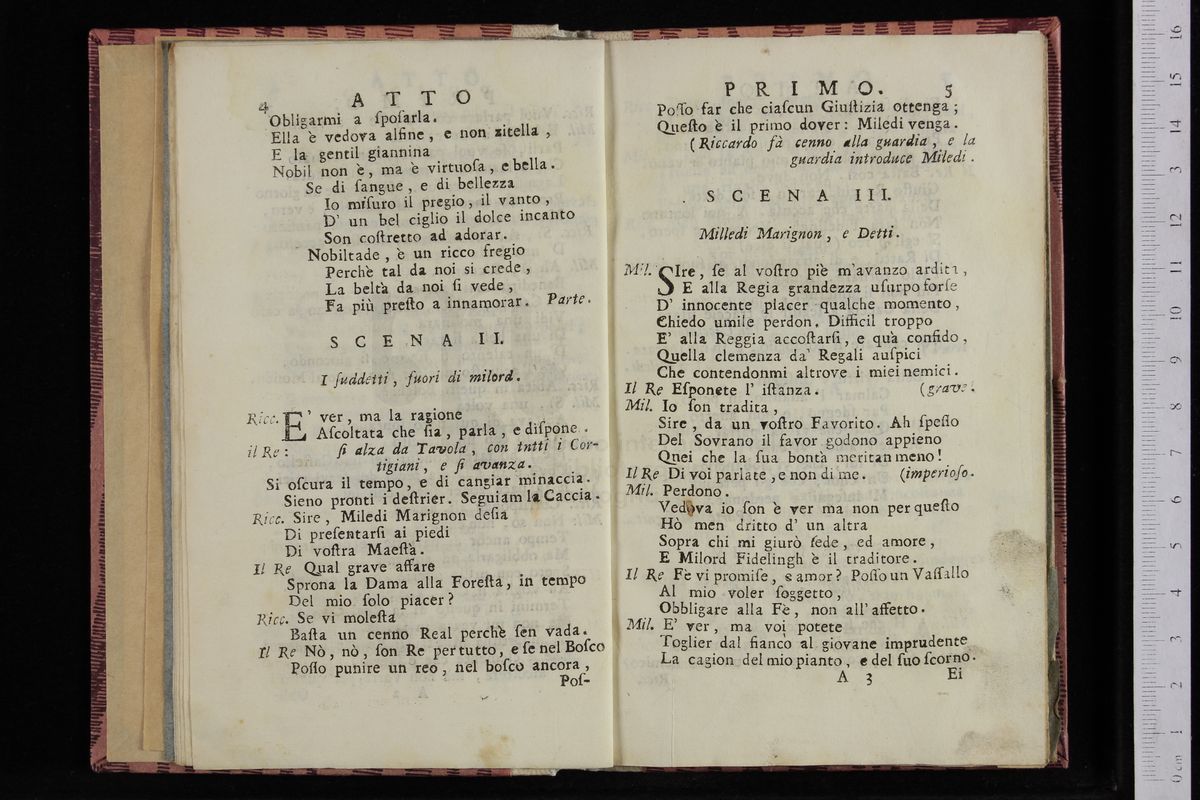 4 ATTO
Obligarmi a ſpoſarla.
Ella è vedova alfine, e non zitella,
E la gentil giannina
Nobil non è, ma è virtuoſa, e bella.
Se di ſangue, e di bellezza
Io miſuro il pregio, il vanto,
D' un bel ciglio il dolce incanto
Son coſtretto ad adorar.
Nobiltade, è un ricco fregio
Perchè tal da noi si crede,
La beltà da noi ſi vede,
Fa più preſto a innamorar. Parte.
SCENA II.
I ſuddetti, fuori di milord.
Ricc. E' ver, ma la ragione
Aſcoltata che ſia, parla, e diſpone.
il Re: ſi alza da Tavola, con tntti i Cor-
tigiani, e ſi avanza.
Si oſcura il tempo, e di cangiar minaccia.
Sieno pronti i deſtrier. Seguiam la Caccia.
Ricc. Sire, Miledi Marignon deſia
Di preſentarſi ai piedi
Di voſtra Maeſtà.
Il Re Qual grave affare
Sprona la Dama alla Foreſta, in tempo
Del mio ſolo piacer?
Ricc. Se vi moleſta
Baſta un cenno Real perchè ſen vada.
Il Re Nò, nò, ſon Re per tutto, e ſe nel Boſco
Poſſo punire un reo, nel boſco ancora,
Poſ-
PRIMO. 5
Poſſo far che ciaſcun Giuſtizia ottenga;
Queſto è il primo dover: Miledi venga.
(Riccardo fà cenno alla guardia, e la
guardia introduce Miledi.
SCENA III.
Milledi Marignon, e Detti.
Mil. SIre, ſe al voſtro piè m'avanzo ardita,
E alla Regia grandezza uſurpo forſe
D' innocente piacer qualche momento,
Chiedo umile perdon. Difficil troppo
E' alla Reggia accoſtarſi, e quà confido,
Quella clemenza da' Regali auſpici
Che contendonmi altrove i miei nemici.
Il Re Eſponete l' iſtanza. (grave.
Mil. Io ſon tradita,
Sire, da un voſtro Favorito. Ah ſpeſſo
Del Sovrano il favor godono appieno
Qnei che la ſua bontà meritan meno!
Il Re Di voi parlate, e non di me. (imperioſo.
Mil. Perdono.
Vedova io ſon è ver ma non per queſto
Hò men dritto d' un altra
Sopra chi mi giurò fede, ed amore,
E Milord Fidelingh è il traditore.
Il Re Fè vi promiſe, e amor? Poſſo un Vaſſallo
Al mio voler ſoggetto,
Obbligare alla Fè, non all' affetto.
Mil. E' ver, ma voi potete
Toglier dal fianco al giovane imprudente
La cagion del mio pianto, e del ſuo ſcorno.
A 3 Ei